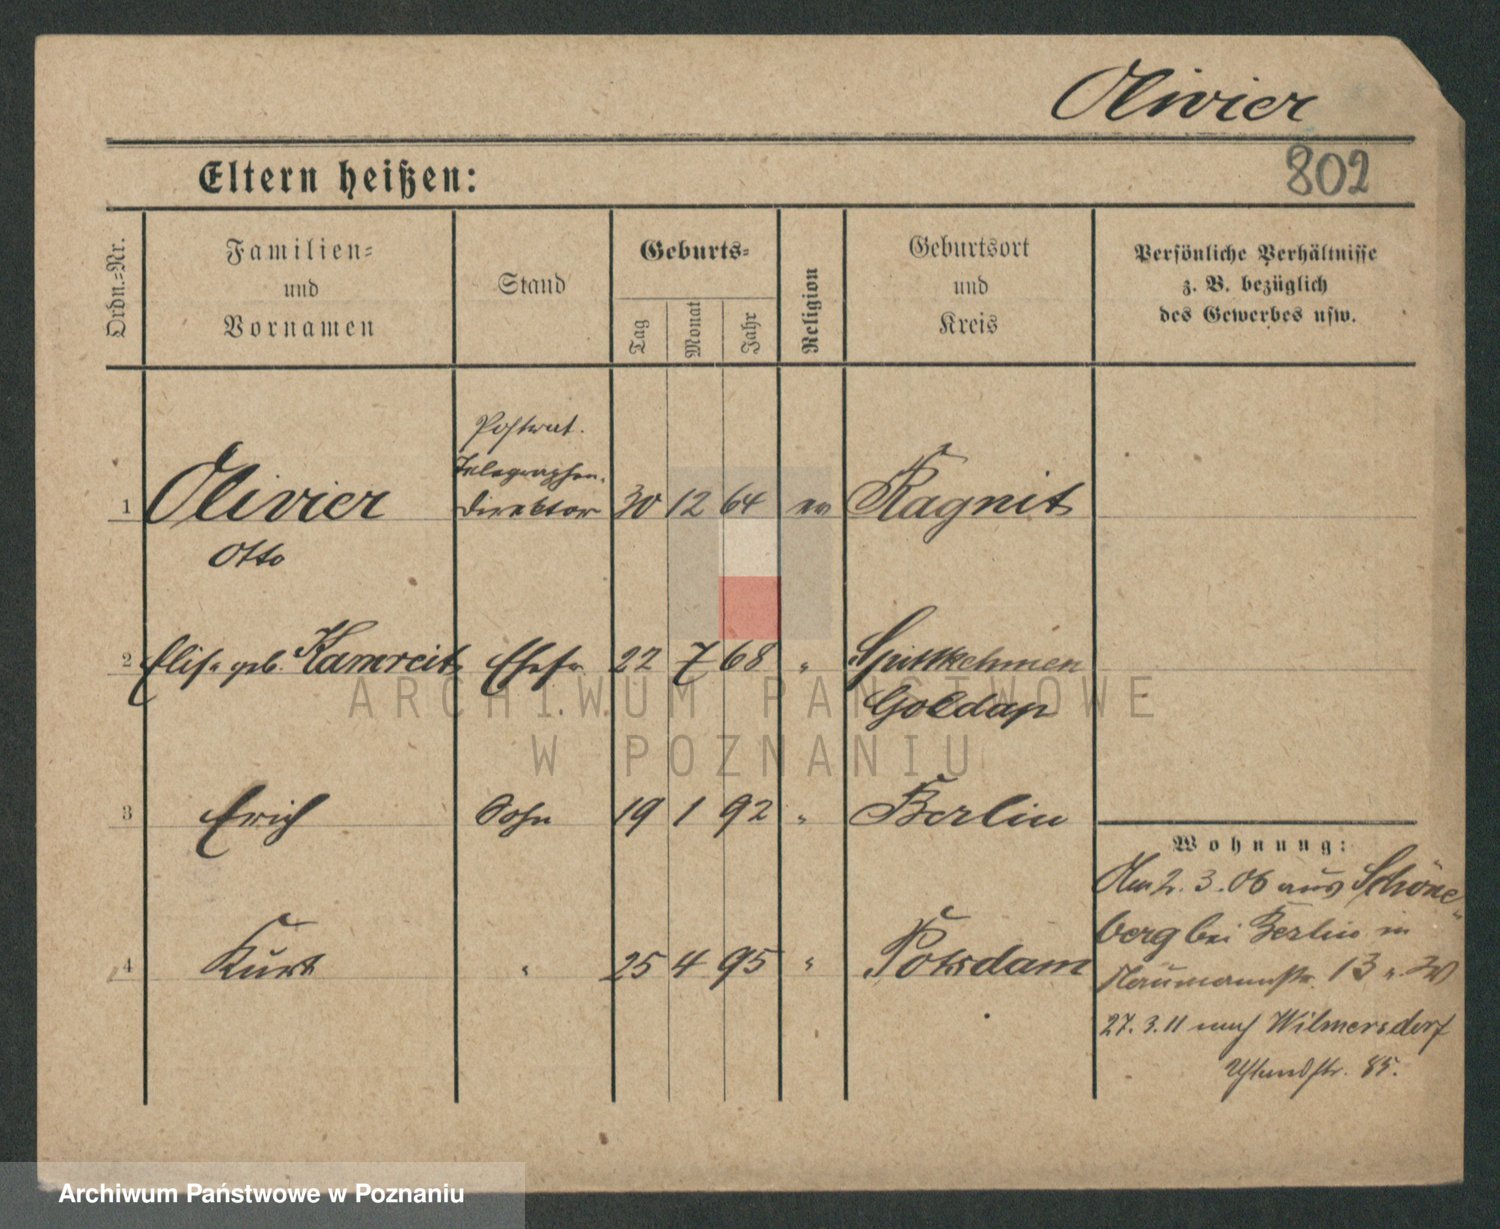 Olivier
802
Eltern heißen:
Ordn.-Nr.
Familien-
und
Vornamen
Stand
Geburts-
Tag
Monat
Jahr
Religion
Geburtsort
und
Kreis
Persönliche Verhältnisse
z. B. bezüglich
des Gewerbes usw.
Postrat.
Telegraphen-
1 Olivier direktor 30 12 64 ev Ragnit
Otto
2 Elise geb. Kamreit Ehefr 22 7 68 " Spittkehmen
Goldap
3 Erich Sohn 19 1 92 " Berlin
4 Kurt " 25 4 95 " Potsdam
Wohnung:
Am 2. 3. 06 aus Schöne-
berg bei Berlin in
Naumannstr. 13
27. 3. 11 nach Wilmersdorf
Uhlandstr. 85.
ARCHIWUM PAŃSTWOWE
W POZNANIU
Archiwum Państwowe w Poznaniu